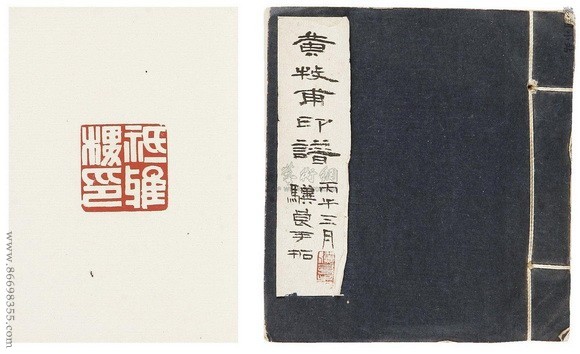 祗雅
樓印
黄牧甫印譜
丙午三月
手拓
www.86698355.com